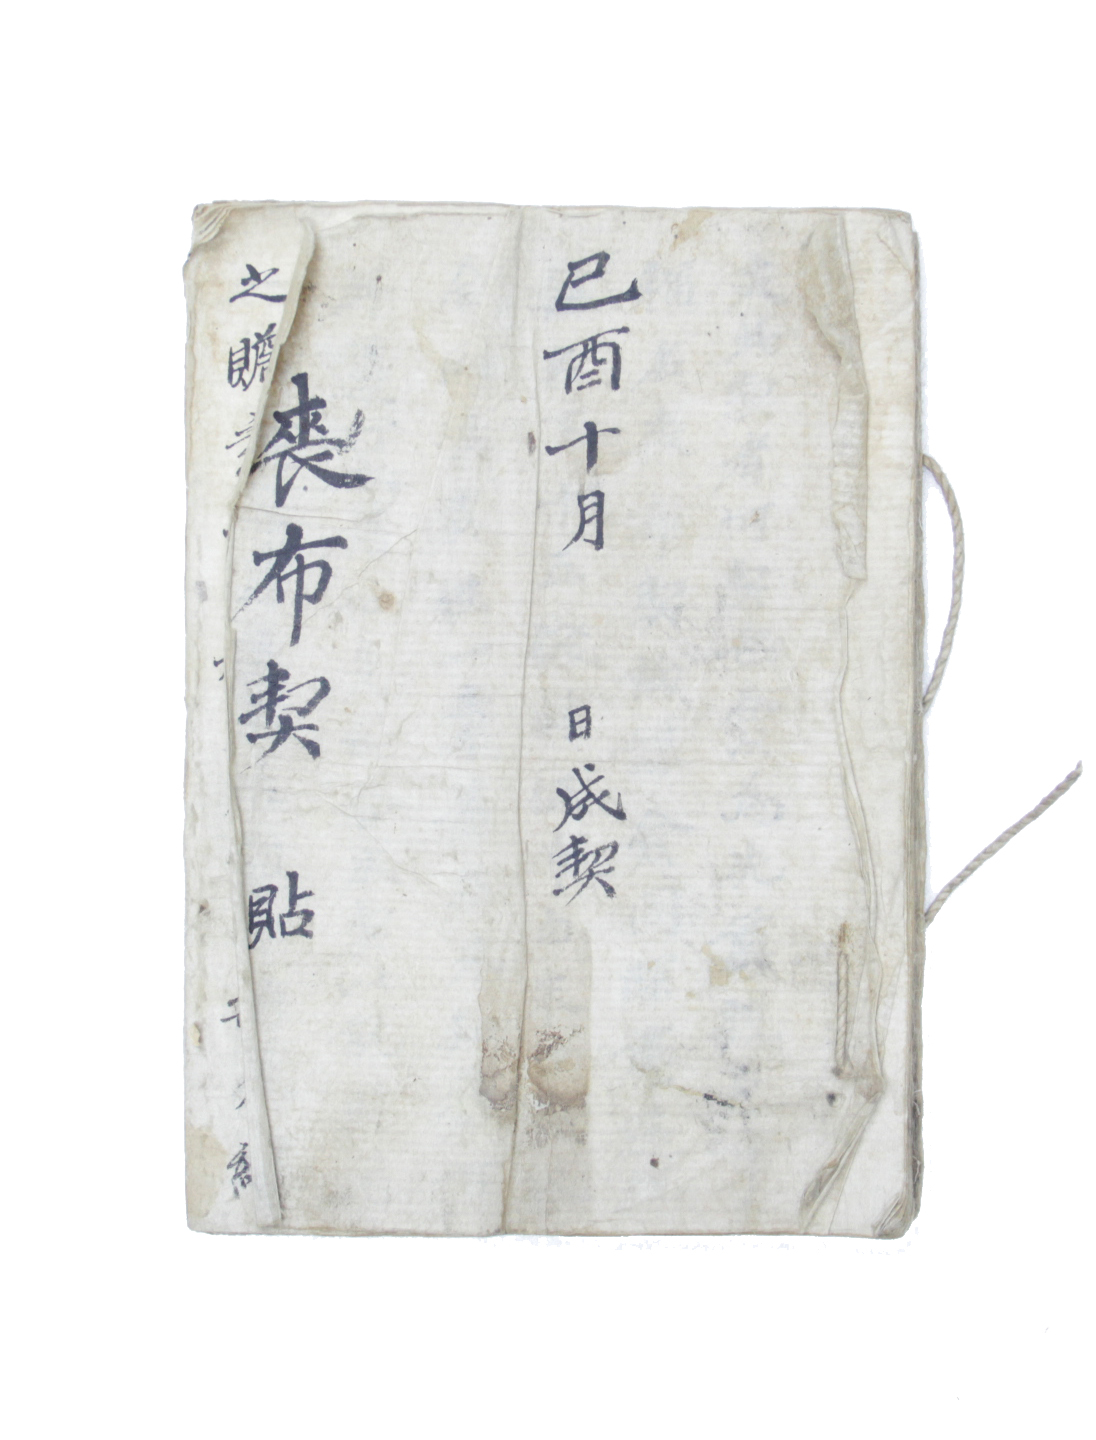 己酉十月 日成契
喪布契 貼
之贍